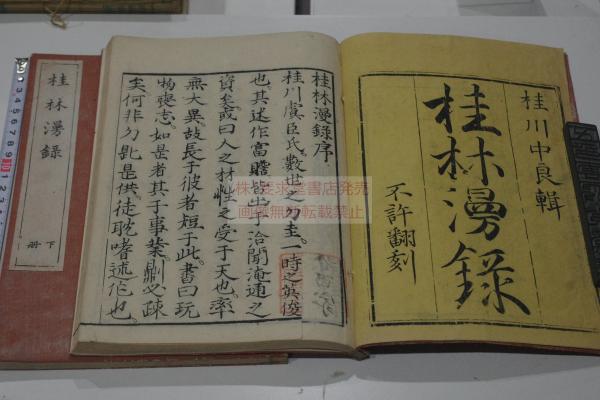 桂川中良輯
桂林漫錄
不許翻刻
桂林漫錄序
桂川虞臣氏數世之勿圭一時之英俊
也其述作富贍皆出乎洽聞淹通之
資矣或曰人之材性之受于天也率
無大異故長于彼者短于此書曰玩
物喪志如是者其于事業鼎必疎
矣何非勿匙是供徒耽嗜述作也
桂林漫錄
下冊
株式会社求龍堂書店発売
画像無断転載禁止